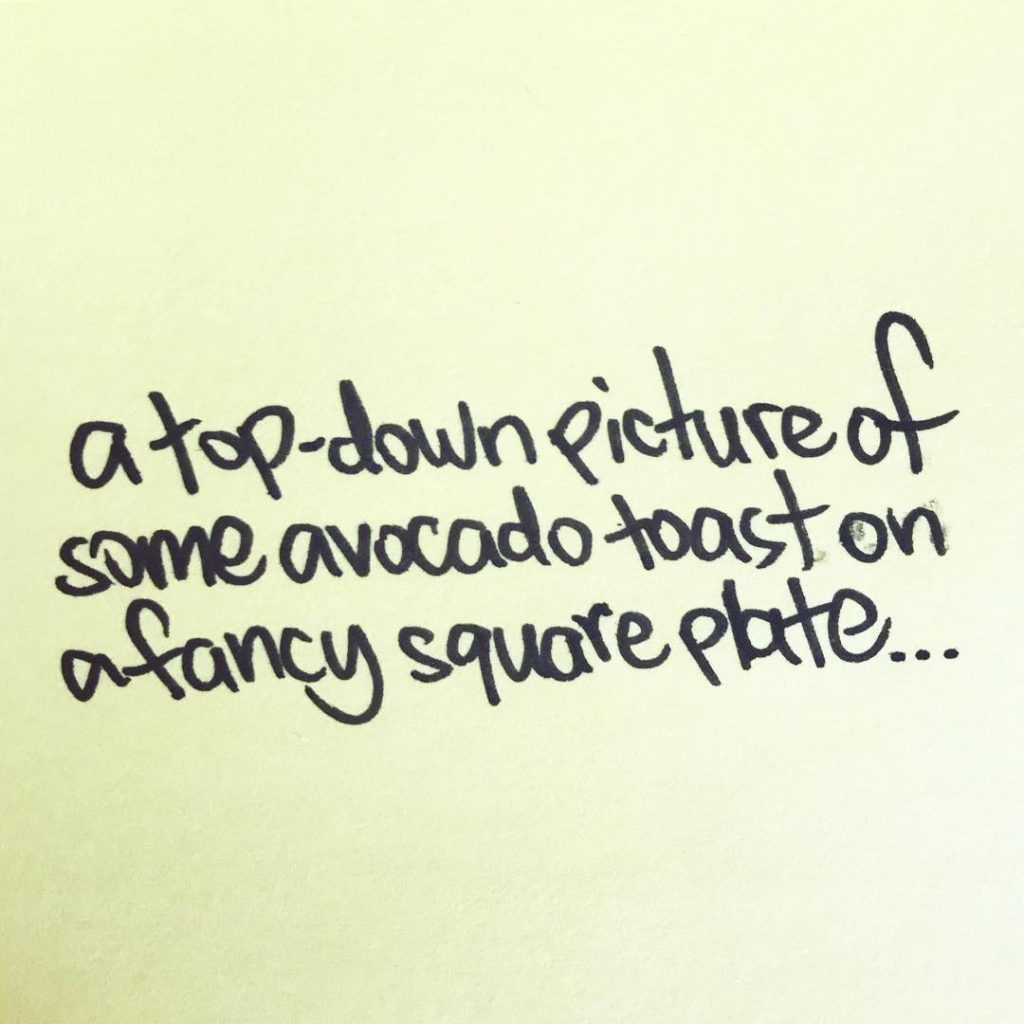 a top-down picture of
some avocado toast on
a fancy square plate...